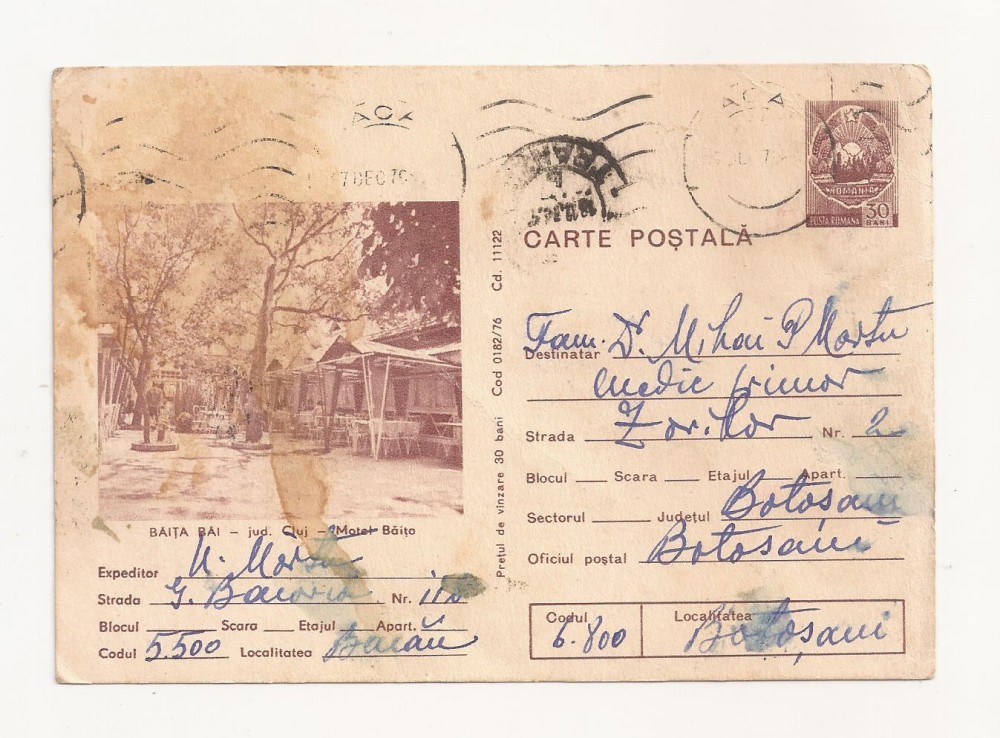 17 DEC 76
ROMANIA
POSTA ROMANA 30 BANI
CARTE POȘTALĂ
BĂIȚA BĂI – jud. Cluj – Motel Băița
Expeditor
Strada G. Bacovia Nr.
Blocul Scara Etajul Apart.
Codul 5.500 Localitatea Bacău
Prețul de vînzare 30 bani Cod 0182/76 Cd. 11122
Destinatar Fam. Dr. Mihai P
medic primar
Strada Zorilor Nr. 2
Blocul Scara Etajul Apart.
Sectorul Județul Botoșani
Oficiul poștal Botosani
Codul Localitatea
6.800 Botoșani